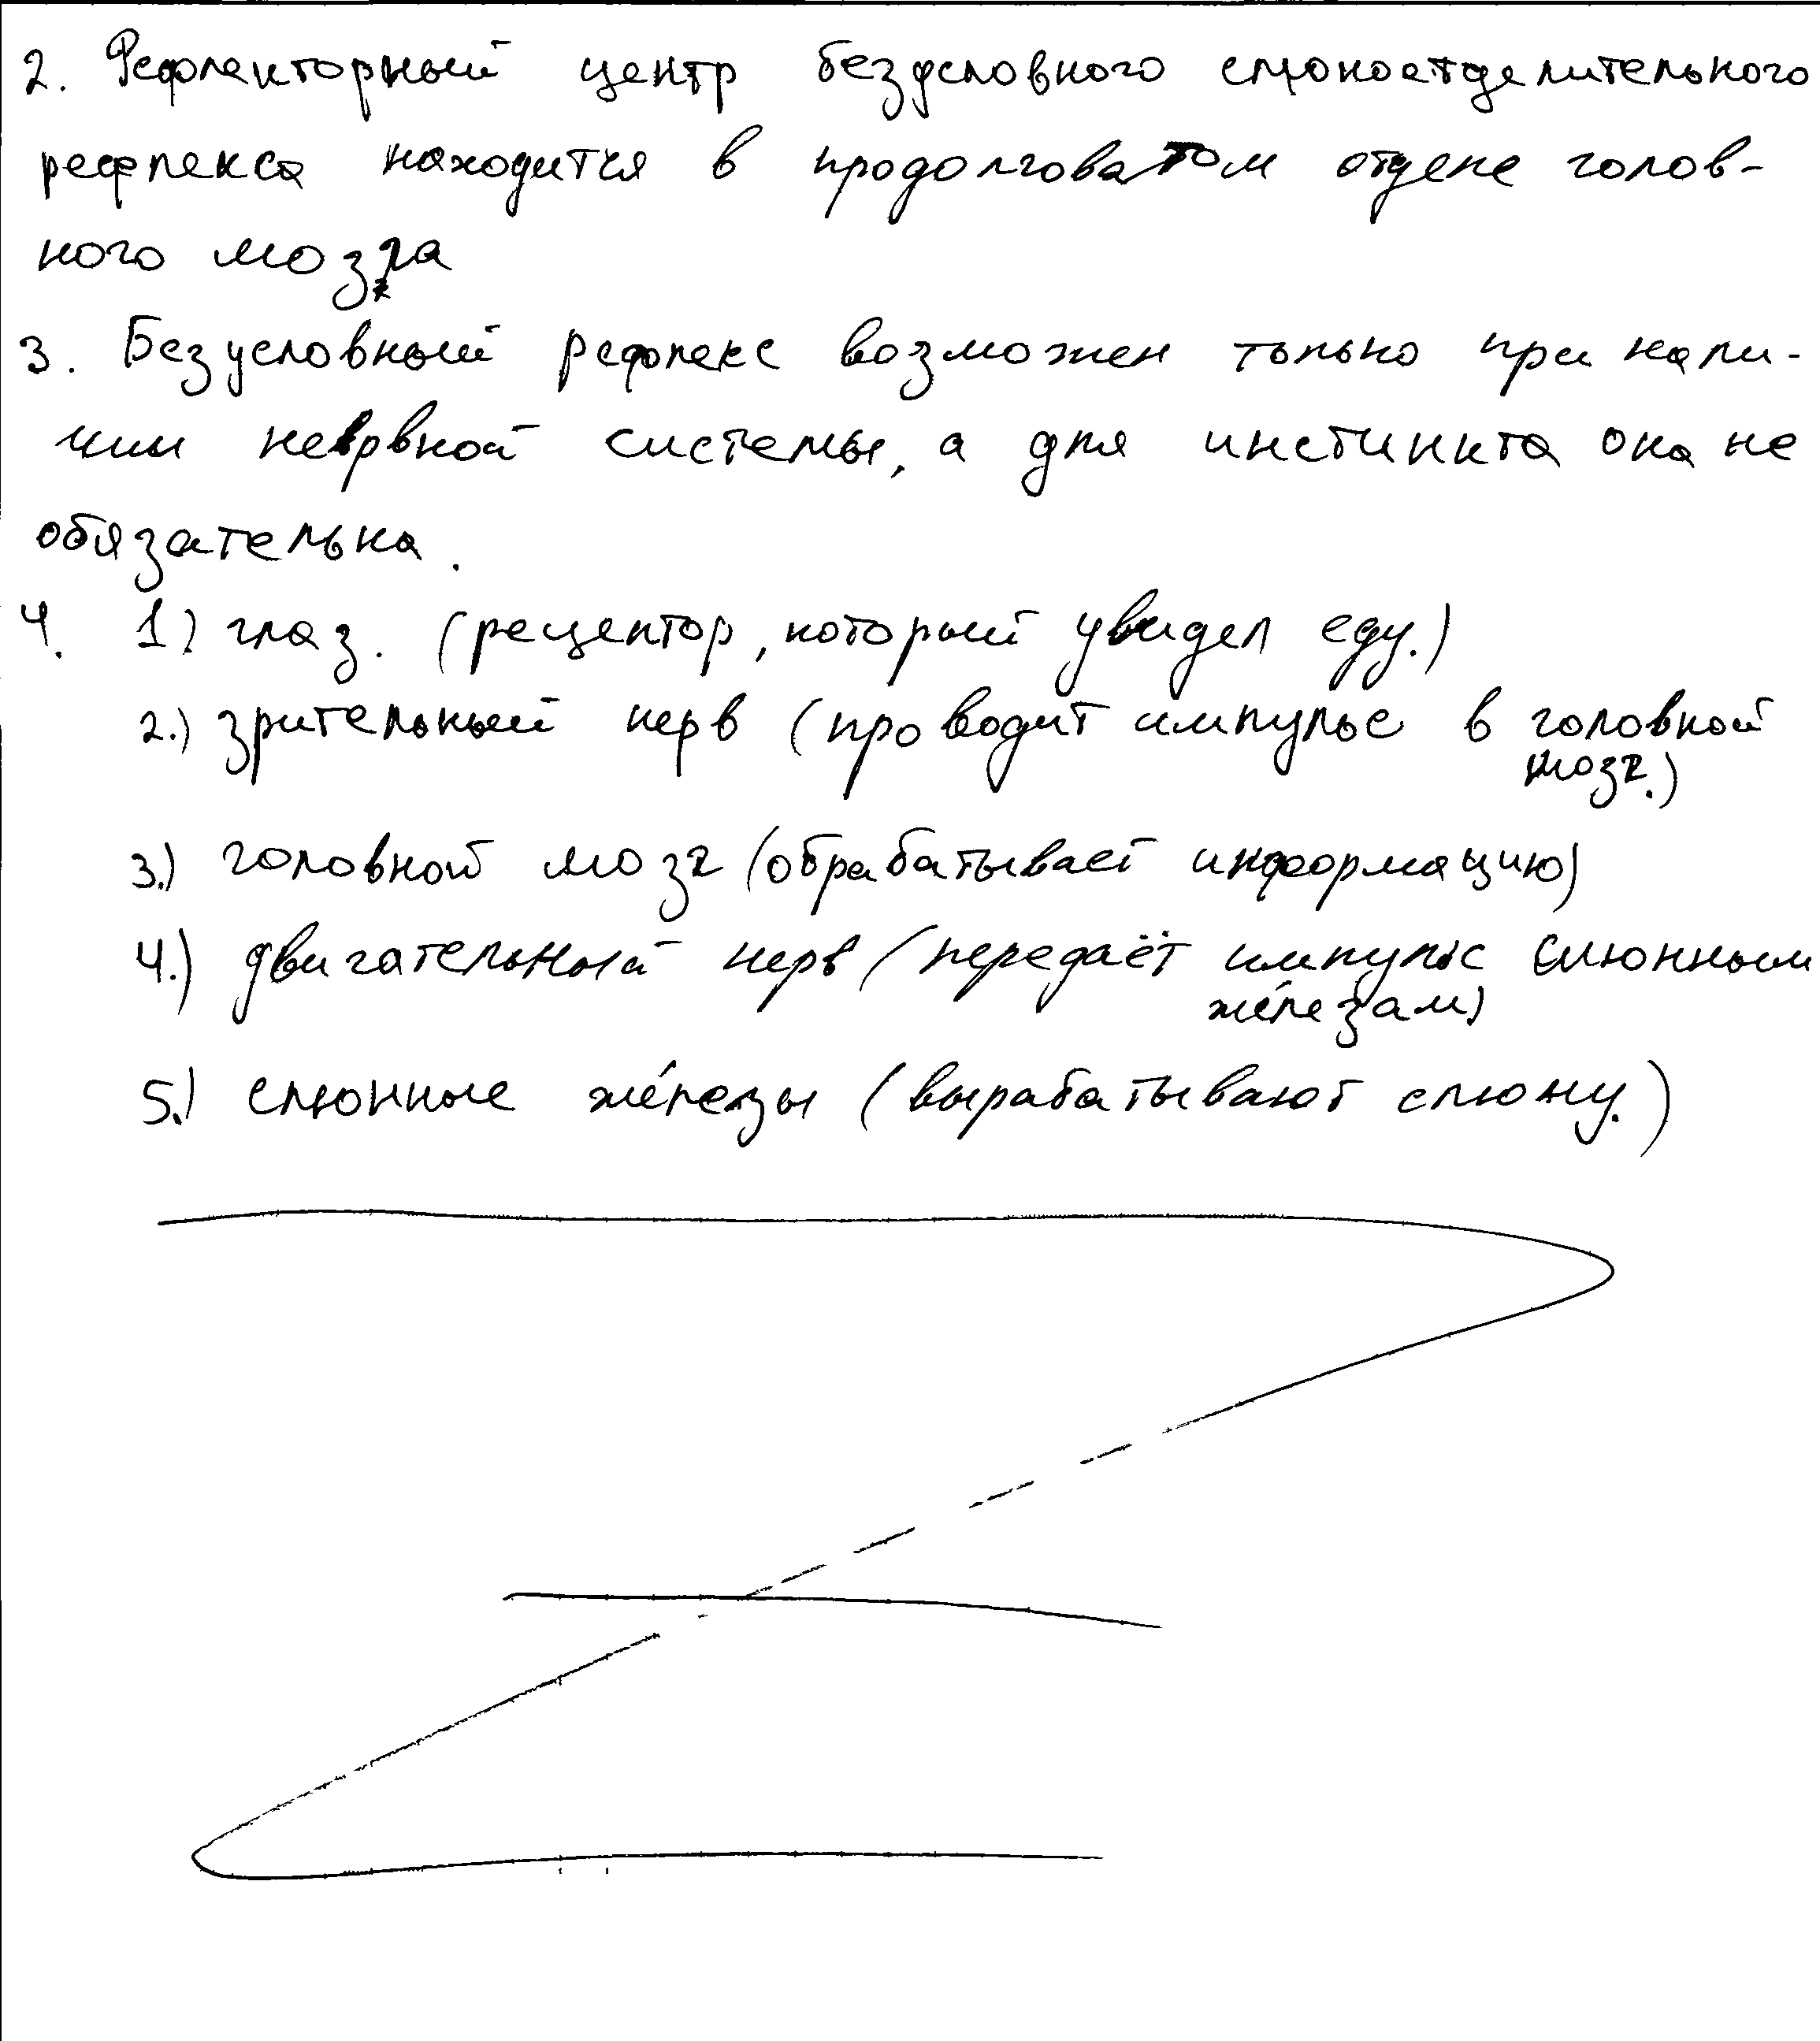 2. Рефлекторный центр безусловного слюноотделительного
рефлекса находится в продолговатом отделе голов-
ного мозга
3. Безусловный рефлекс возможен только при нали-
чии неврвной системы, а для инстинкта она не
обязательна.
4. 1) глаз. (рецептор, который увидел еду.)
2.) зрительный нерв (проводит импульс в головной
мозг.)
3.) головной мозг (обрабатывает информацию)
4.) двигательный нерв (передаёт импульс слюнным
железам)
5.) слюнные железы (вырабатывают слюну.)